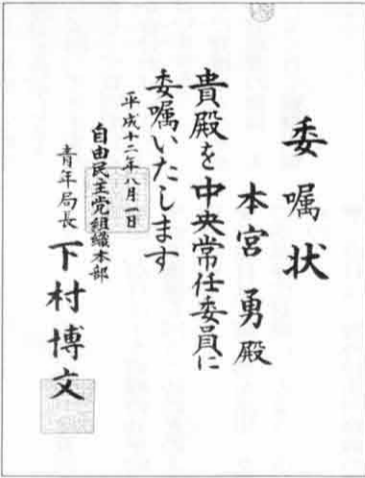 委嘱状
本宮勇殿
貴殿を中央常任委員に
委嘱いたします
平成十二年八月一日
自由民主党組織本部
青年局長 下村博文